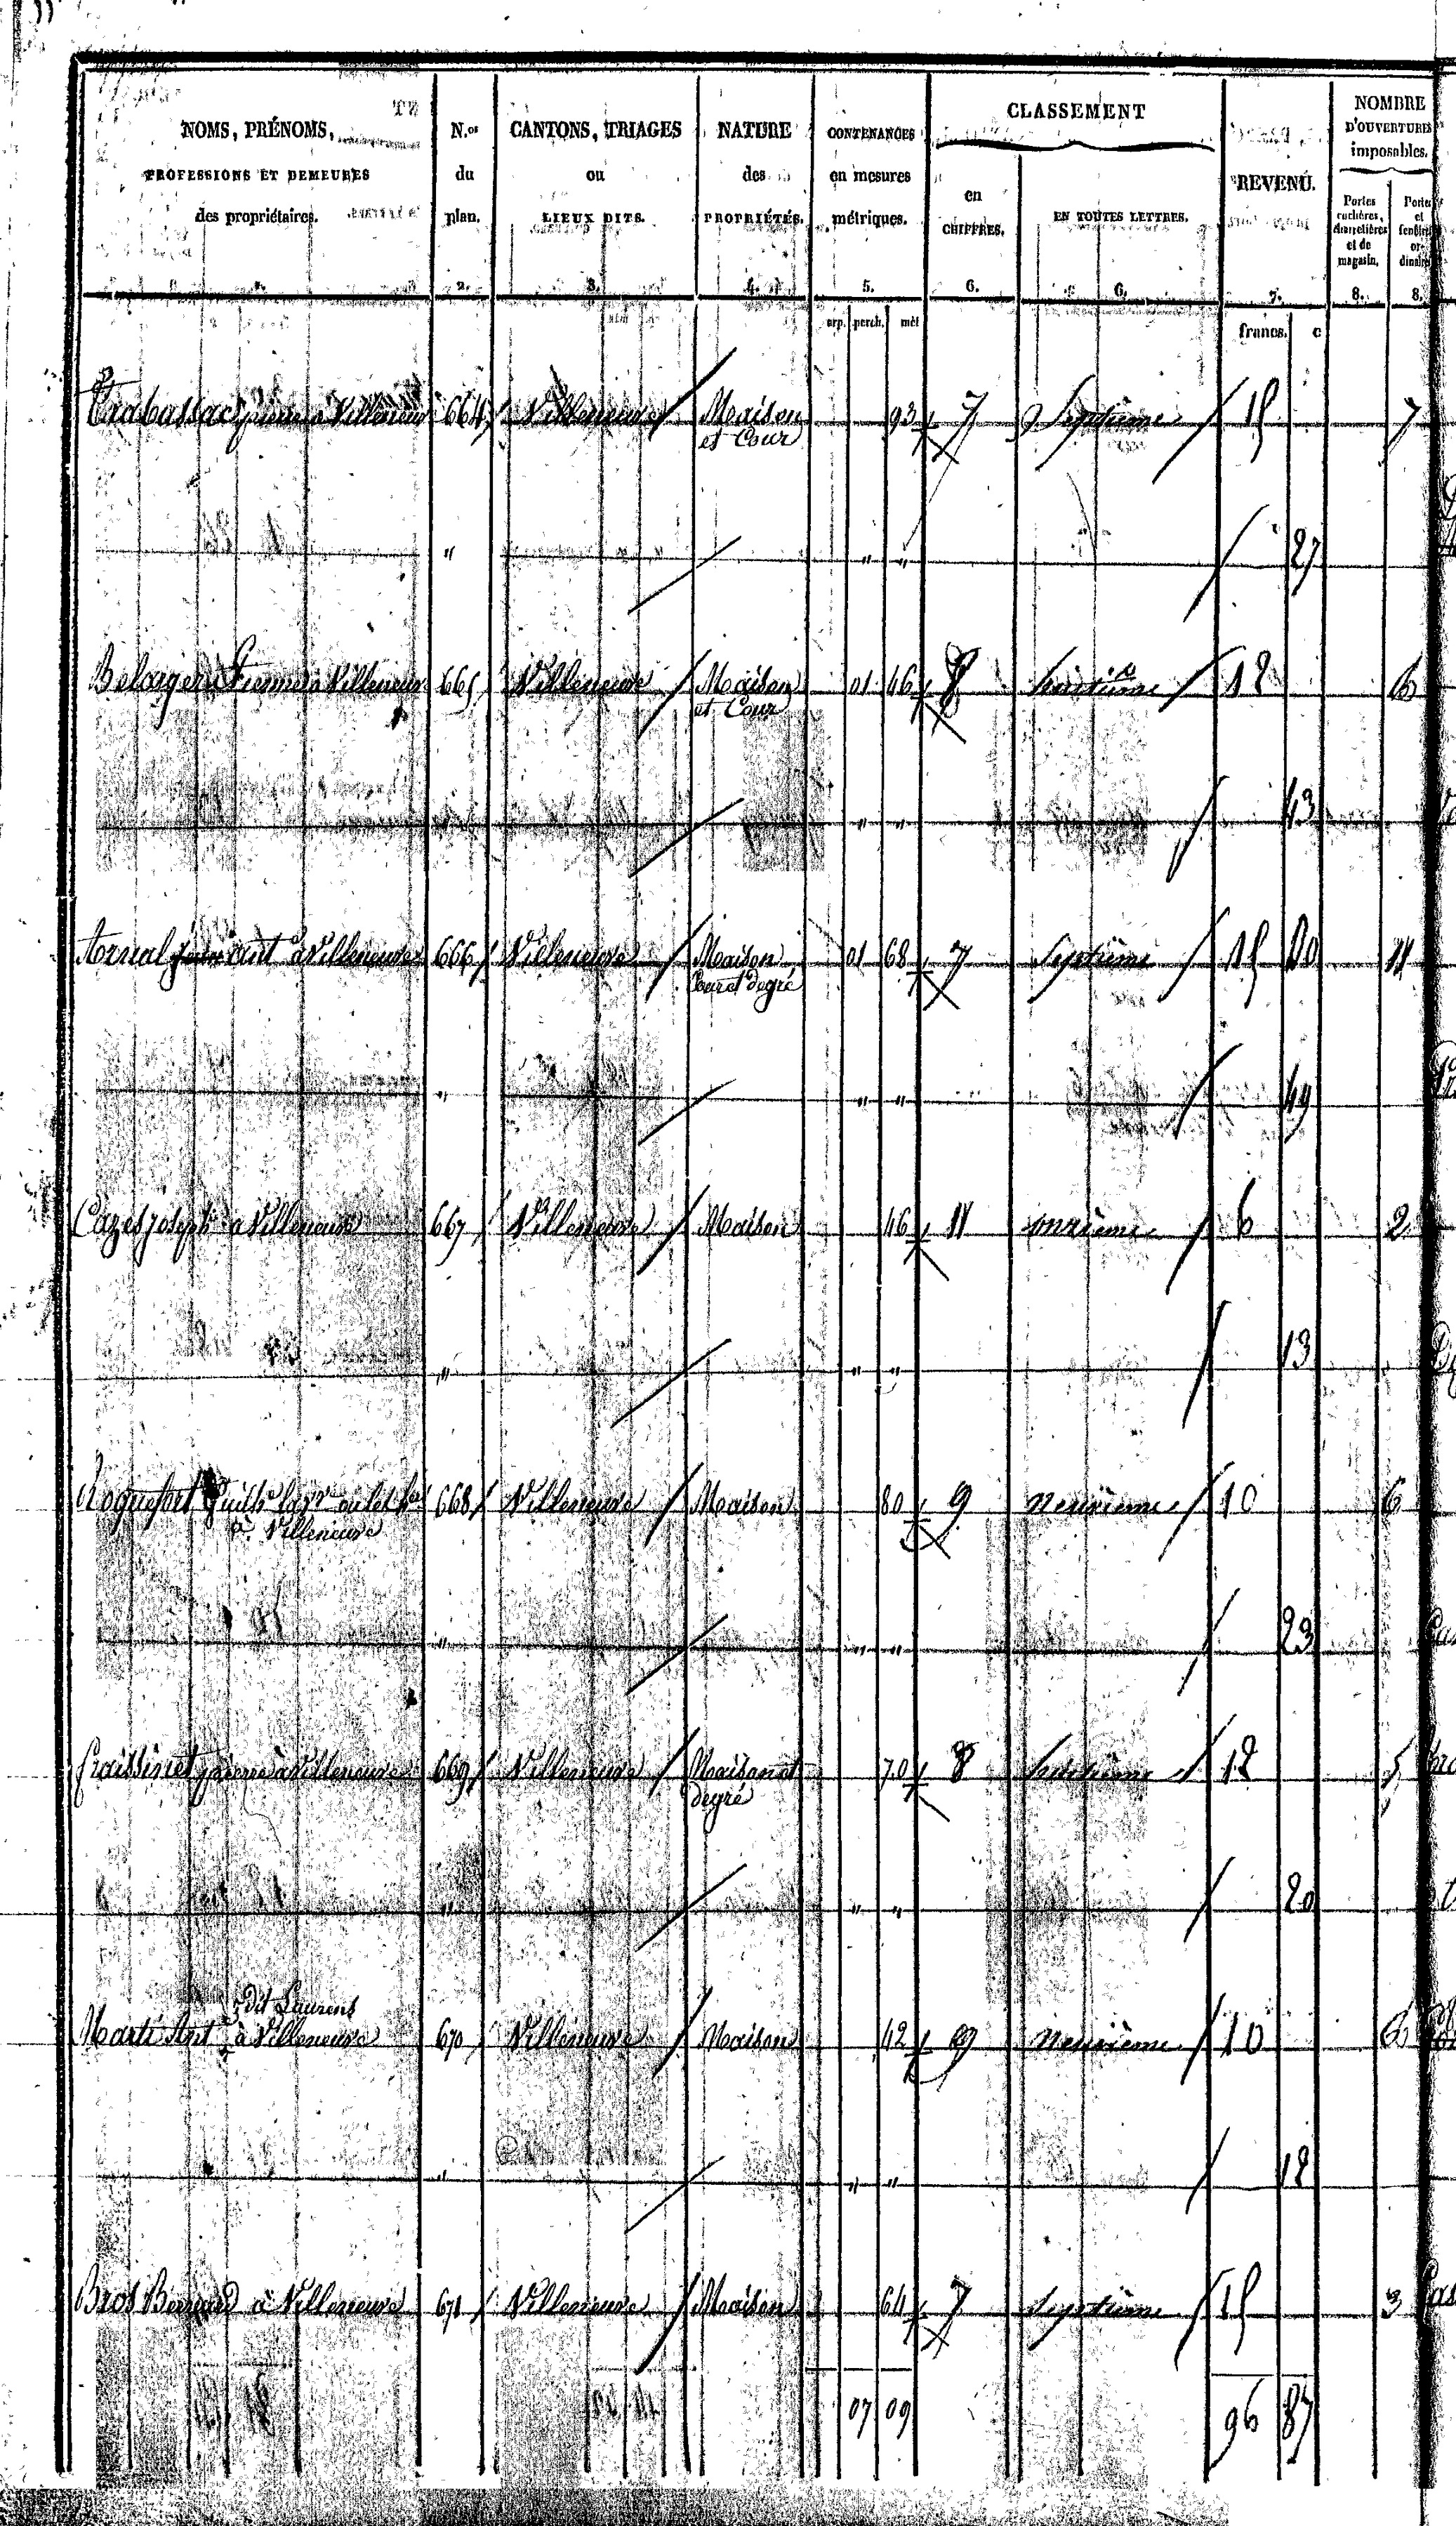 NOMS, PRÉNOMS, PROFESSIONS ET DEMEURES des propriétaires. N.os du plan. CANTONS, TRIAGES ou LIEUX DITS. NATURE des PROPRIÉTÉS. CONTENANCES en mesures métriques. CLASSEMENT en CHIFFRES. EN TOUTES LETTRES. REVENU. NOMBRE D'OUVERTURES imposables.
Portes cochères, charretières et de magasin. Portes et fenêtres ordinaires
1. 2. 3. 4. 5. 6. 6. 7. 8. 8.
arp. perch. mèt francs. c
Trabassac pierre à Villeneuve 664 Villeneuve Maison et Cour 93 7 Septième 15 7
" " " 27
Etienne à Villeneuve 665 Villeneuve Maison et Cour 01 46 8 huitième 12 6
" " 43
Arnal ant à Villeneuve 666 Villeneuve Maison Cour et degré 01 68 7 Septième 15 11
" " " 49
Cazes joseph à Villeneuve 667 Villeneuve Maison 46 11 onzième 6 2
" " " 13
Roquefort à Villeneuve 668 Villeneuve Maison 80 9 Neuvième 10 6
" " " 23
fraissinet pierre à Villeneuve 669 Villeneuve Maison et degré 70 8 huitième 12 5
" " " 20
Marti Ant dit Laurens à Villeneuve 670 Villeneuve Maison 42 9 Neuvième 10 6
" " " 12
Bros Bernard à Villeneuve 671 Villeneuve Maison 64 7 Septième 15 3
07 09 96 87